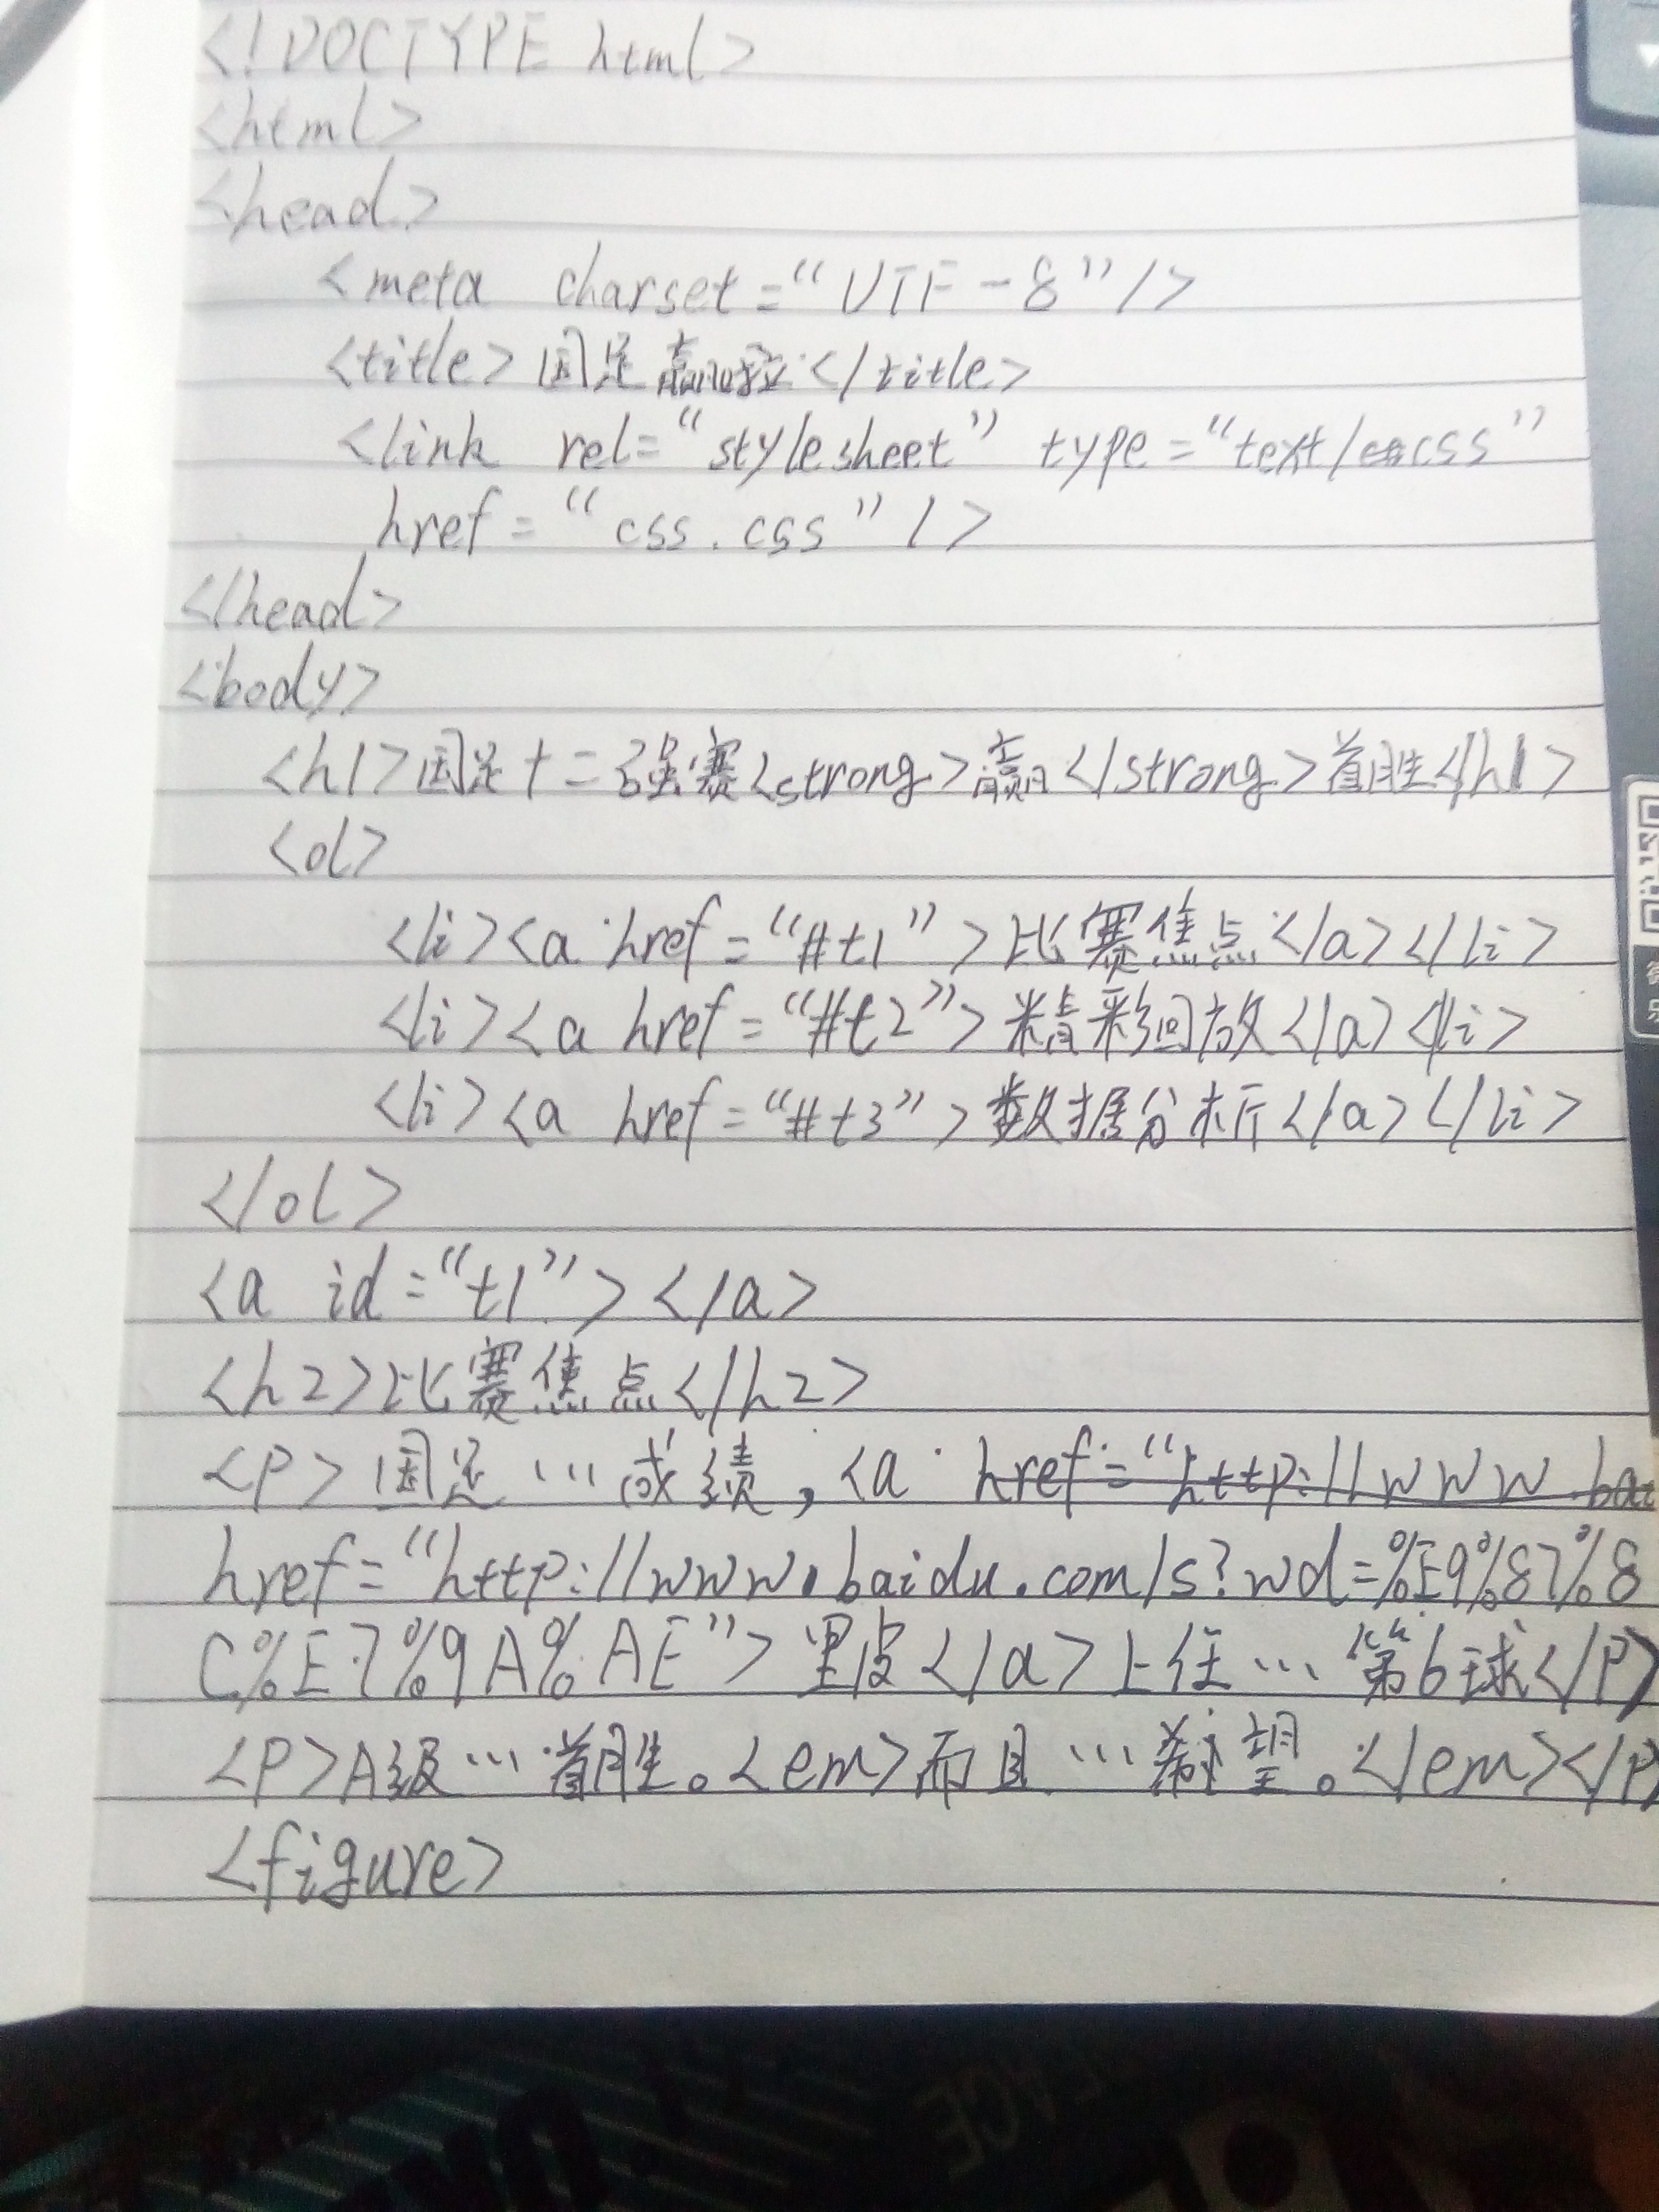 <!DOCTYPE html>
<html>
<head>
<meta charset="UTF-8"/>
<title>国足赢啦</title>
<link rel="stylesheet" type="text/css"
href="css.css"/>
</head>
<body>
<h1>国足十二强赛<strong>赢</strong>首胜</h1>
<ol>
<li><a href="#t1">比赛焦点</a></li>
<li><a href="#t2">精彩回放</a></li>
<li><a href="#t3">数据分析</a></li>
</ol>
<a id="t1"></a>
<h2>比赛焦点</h2>
<P>国足…成绩,<a href="http://www.bai
href="http://www.baidu.com/s?wd=%E9%87%8
C%E7%9A%AE">里皮</a>上任…第6球</P>
<P>A级…首胜。<em>而且…希望。</em></P>
<figure>